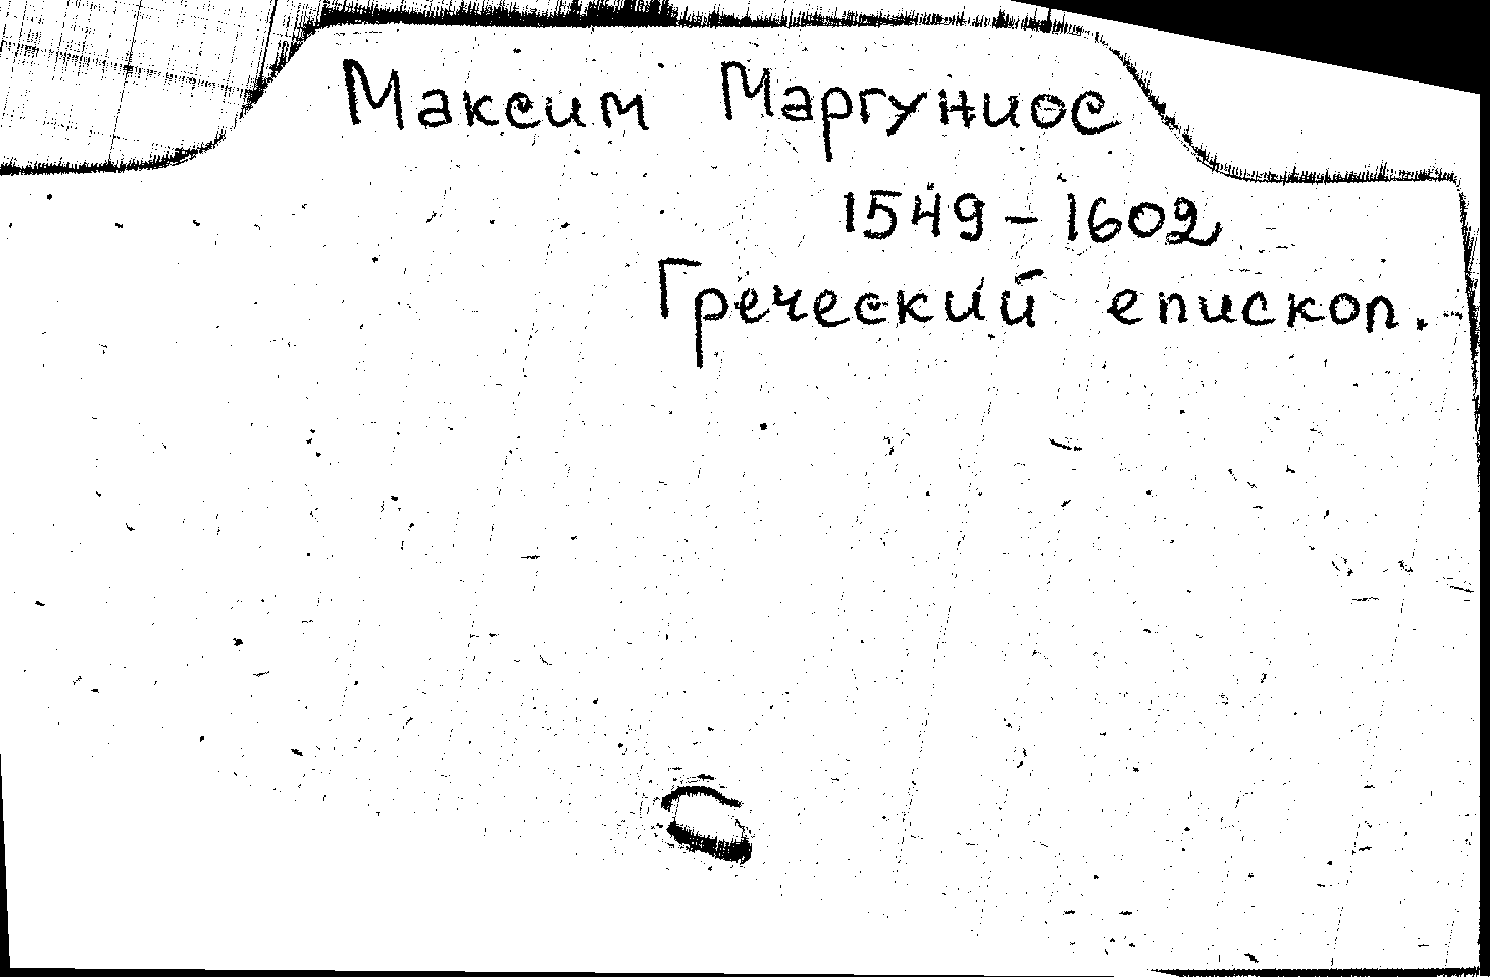 Максим Маргуниос
1549 – 1602
Греческий епископ.